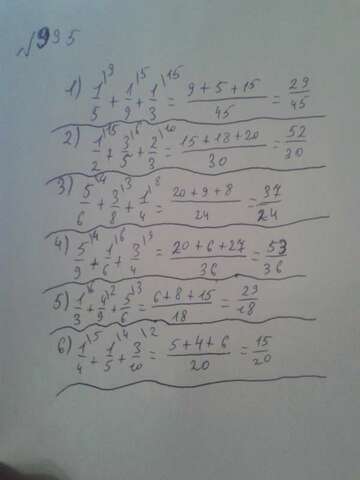 №995
1) 1/5\9 + 1/9\5 + 1/3\15 = (9+5+15)/45 = 29/45
2) 1/2\15 + 3/5\6 + 2/3\10 = (15+18+20)/30 = 52/30
3) 5/6\4 + 3/8\3 + 1/4\8 = (20+9+8)/24 = 37/24
4) 5/9\4 + 1/6\6 + 3/4\9 = (20+6+27)/36 = 53/36
5) 1/3\6 + 4/9\2 + 5/6\3 = (6+8+15)/18 = 29/18
6) 1/4\5 + 1/5\4 + 3/10\2 = (5+4+6)/20 = 15/20